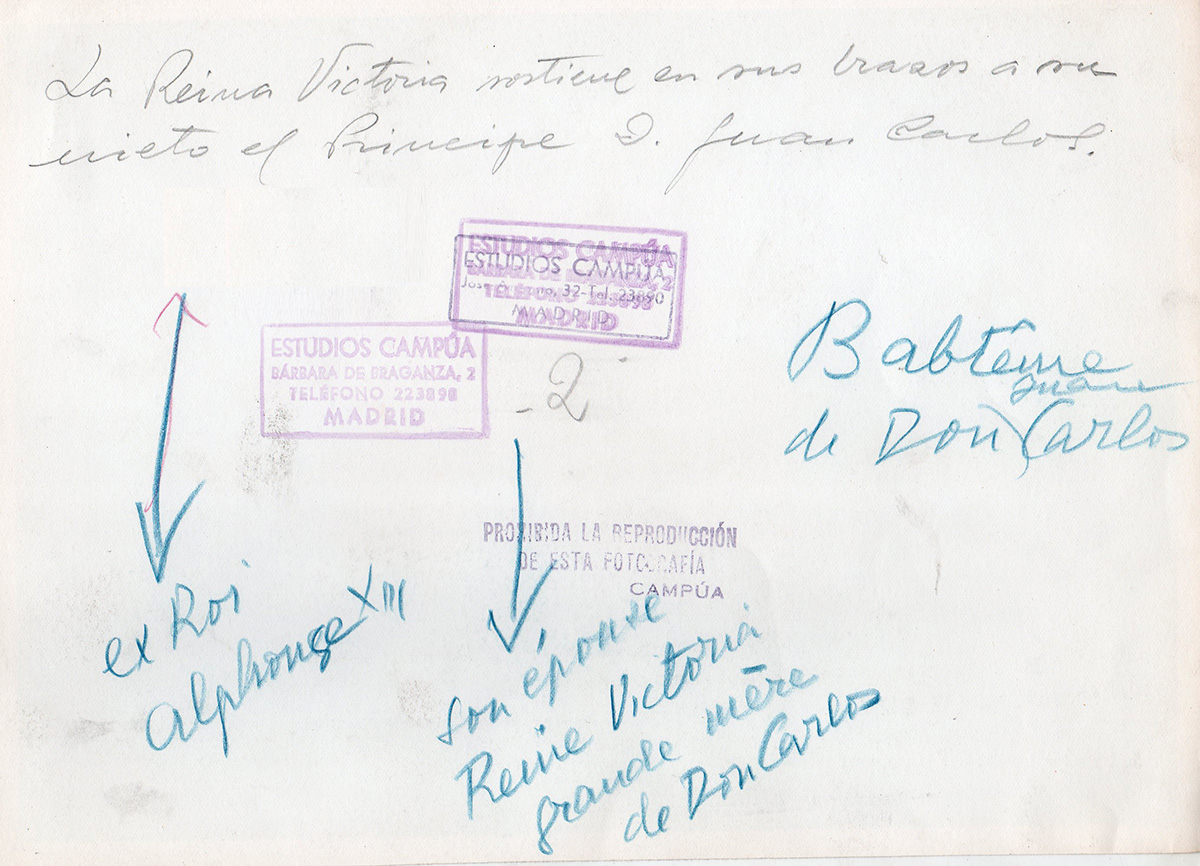 La Reina Victoria sostiene en sus brazos a su
nieto el Principe D. Juan Carlos.
ESTUDIOS CAMPÚA
BÁRBARA DE BRAGANZA, 2
TELÉFONO 223898
MADRID
ESTUDIOS CAMPÚA
32-Tel. 23890
MADRID
ESTUDIOS CAMPÚA
BÁRBARA DE BRAGANZA, 2
TELÉFONO 223898
MADRID
- 2 -
Babtême
Juan
de Don Carlos
PROHIBIDA LA REPRODUCCIÓN
DE ESTA FOTOGRAFÍA
CAMPÚA
ex Roi
Alphonse XIII
son épouse
Reine Victoria
grande mère
de Don Carlos